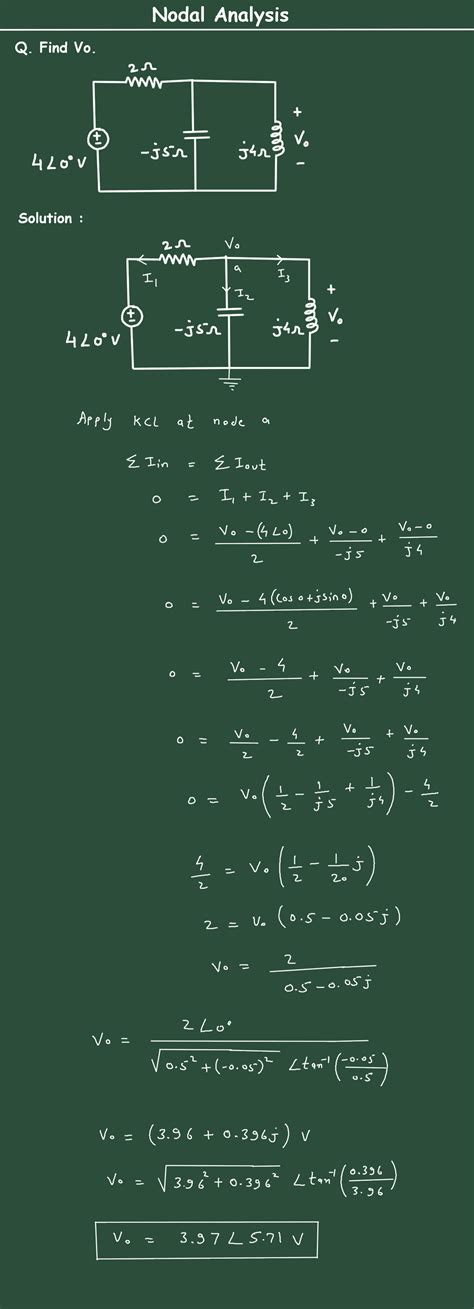 Nodal Analysis
Q. Find Vo.
2Ω
4∠0° V
-j5Ω
j4Ω
+
Vo
-
Solution :
2Ω
Vo
I₁
a
I₂
I₃
4∠0° V
-j5Ω
j4Ω
+
Vo
-
Apply KCL at node a
Σ Iin = Σ Iout
0 = I₁ + I₂ + I₃
0 = (Vo - (4∠0))/2 + (Vo - 0)/(-j5) + (Vo - 0)/(j4)
0 = (Vo - 4(cos 0 + j sin 0))/2 + Vo/(-j5) + Vo/(j4)
0 = (Vo - 4)/2 + Vo/(-j5) + Vo/(j4)
0 = Vo/2 - 4/2 + Vo/(-j5) + Vo/(j4)
0 = Vo(1/2 - 1/(j5) + 1/(j4)) - 4/2
4/2 = Vo(1/2 - 1/20 j)
2 = Vo (0.5 - 0.05j)
Vo = 2/(0.5 - 0.05j)
Vo = 2∠0°/(√(0.5² + (-0.05)²) ∠tan⁻¹(-0.05/0.5))
Vo = (3.96 + 0.396j) V
Vo = √(3.96² + 0.396²) ∠tan⁻¹(0.396/3.96)
Vo = 3.97∠5.71 V